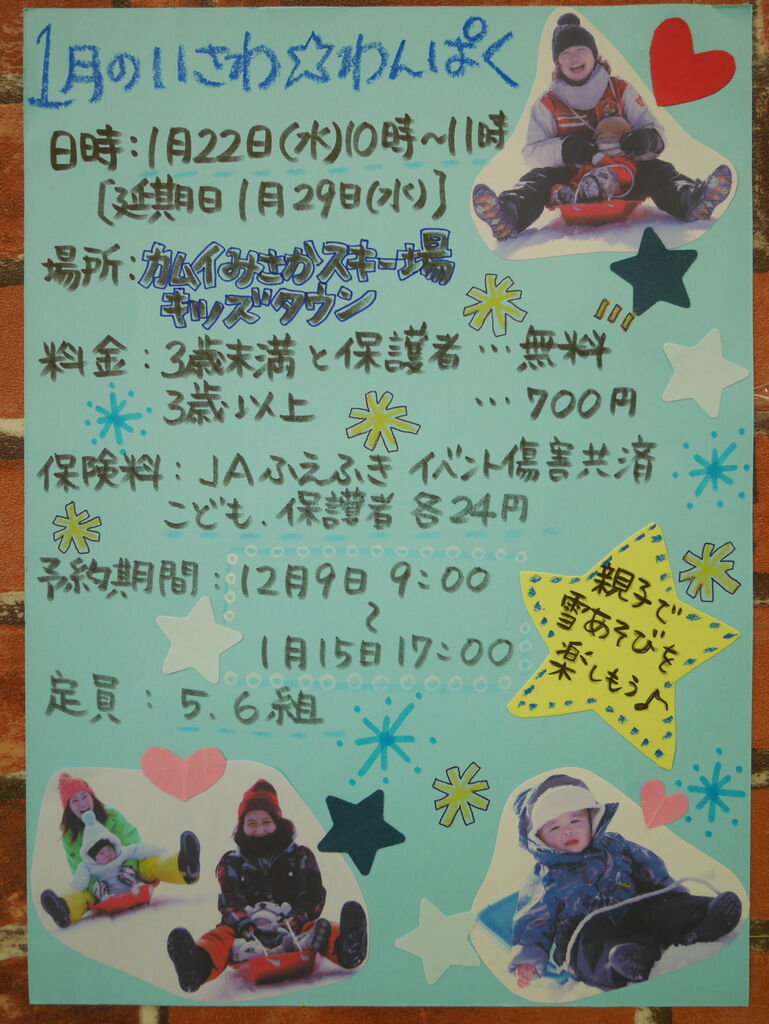 1月のいさわ☆わんぱく
日時：1月22日(水)10時～11時
[延期日 1月29日(水)]
場所：カムイみさかスキー場
キッズタウン
料金：3歳未満と保護者…無料
3歳以上 …700円
保険料：JAふえふき イベント傷害共済
こども、保護者 各24円
予約期間：12月9日 9:00
～
1月15日 17:00
定員：5、6組
親子で
雪あそびを
楽しもう♪